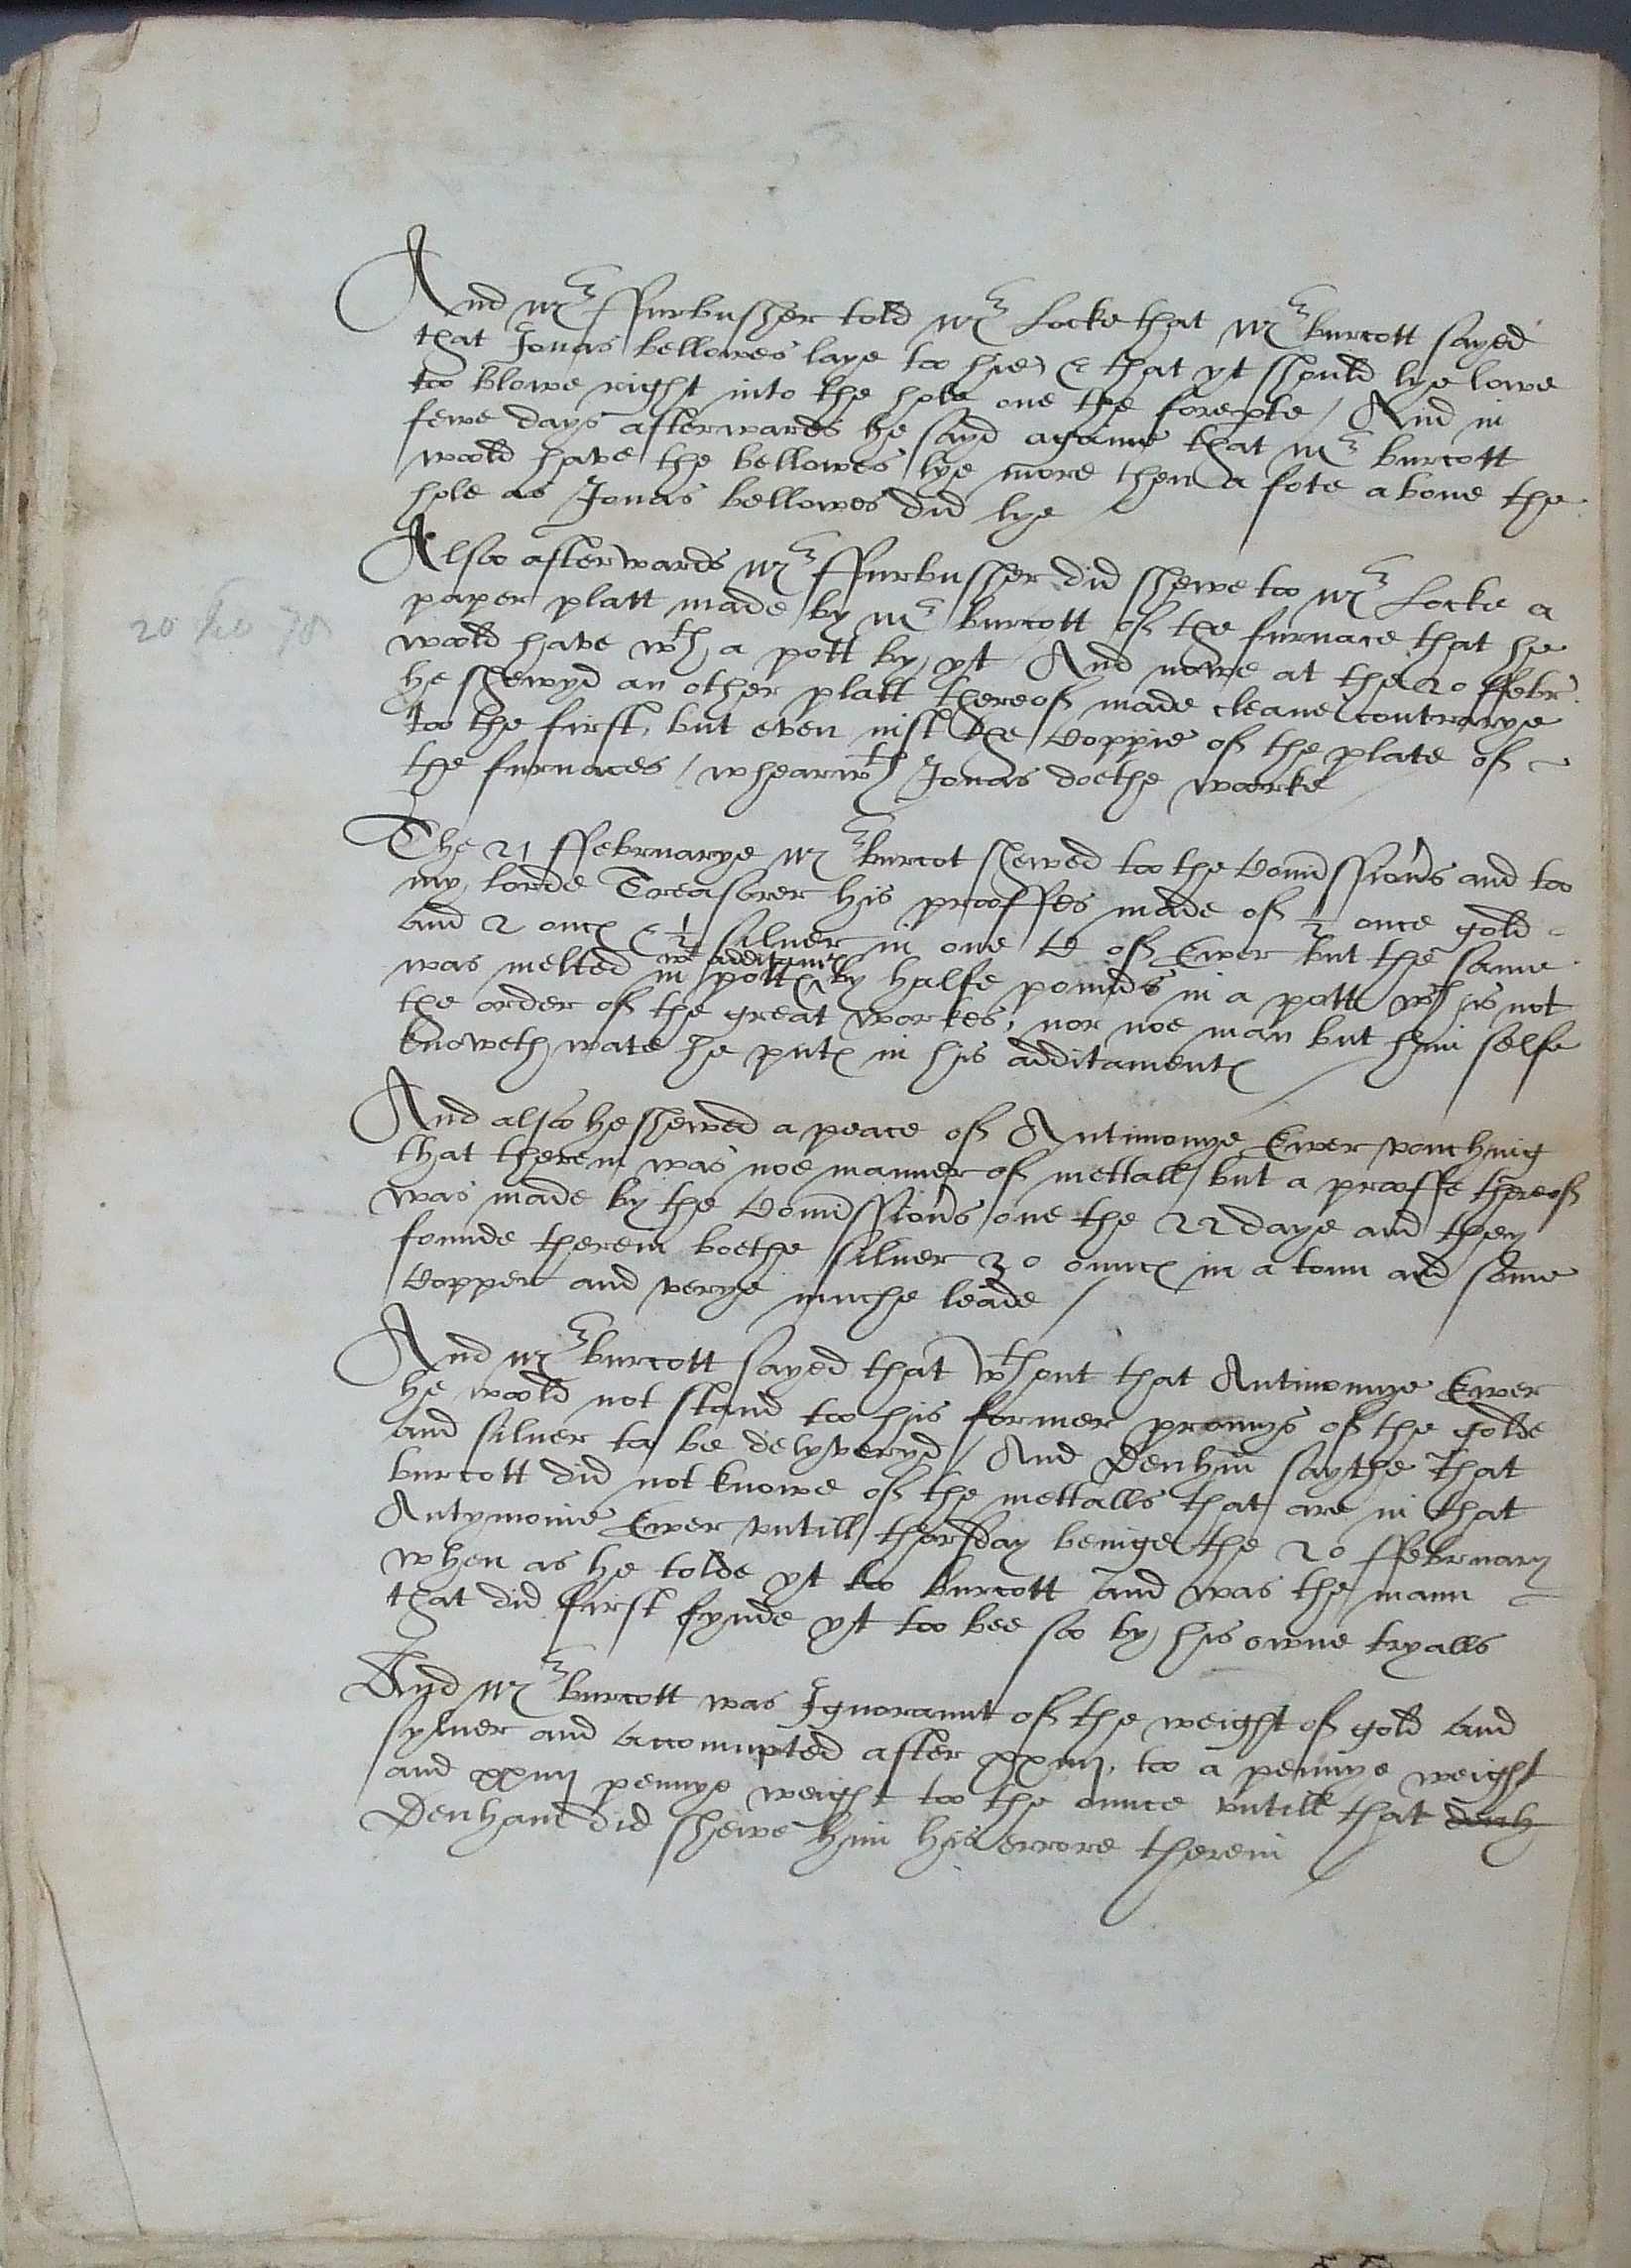 And mr ffurbusher told mr Locke that mr burcott sayed
that Jonas bellowes laye too hie & that yt should lye lowe
too blowe right into the hole one the forepte / And in
fewe days afterwards he sayd againe that mr burcott
woold have the bellowes lye more then a fote above the
hole as Jonas bellowes did lye /
Alsoo afterwards mr ffurbusher did shewe too mr Locke a
paper platt made by mr burcott of the furnace that he
woold have wth a pott by yt / And nowe at the 20 ffebr
20 feb 78
he shewyd an other platt thereof made cleane contrarye
too the first, but even iust the Coppie of the plate of
the furnaces / whearwth Jonas doethe woorke
The 21 ffebruarye mr burcot shewed too the Comissionrs and too
my lorde Treasorer his prooffes made of ½ once gold
and 2 onces & ½ silver in one C of Ewer but the same
wt additaments
was melted in potts ^ by halfe pounds in a pott wch is not
the order of the great workes, nor noe man but him selfe
knoweth wate he putes in his additamentes /
And alsoo he shewed a peace of Antimonye Ewer vouching
that therein was noe manner of mettall / but a prooffe thereof
was made by the Comissionrs one the 22 daye and they
founde therein boethe silver 30 ounces in a tonn and some
Copper and verye muche leade /
And mr burcott sayed that wthout that Antimonye Ewer
he woold not stand too his former promys of the golde
and silver to be delyveryd / And Denham saythe that
burcott did not knowe of the mettalls that are in that
Antymonie Ewer vntill thorsday beinge the 20 ffebruary
when as he tolde yt too burcott and was the mann
that did first fynde yt too bee soo by his owne tryalls
And mr burcott was Ignoraunt of the weight of gold and
sylver and accoumpted after xxiiij, too a pennye weight
and xxiiij pennye weight too the ounce vntill that denh
Denham did shewe him his errore therein /